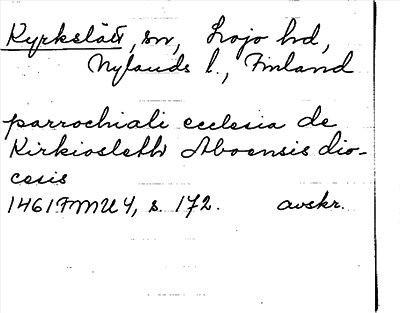 Kyrkslätt, sn, Lojo hd,
Nylands l., Finland
parrochiali ecclesia de
Kirkiosleth Aboensis dio-
cesis
1461 FMU 4, s. 172. avskr.